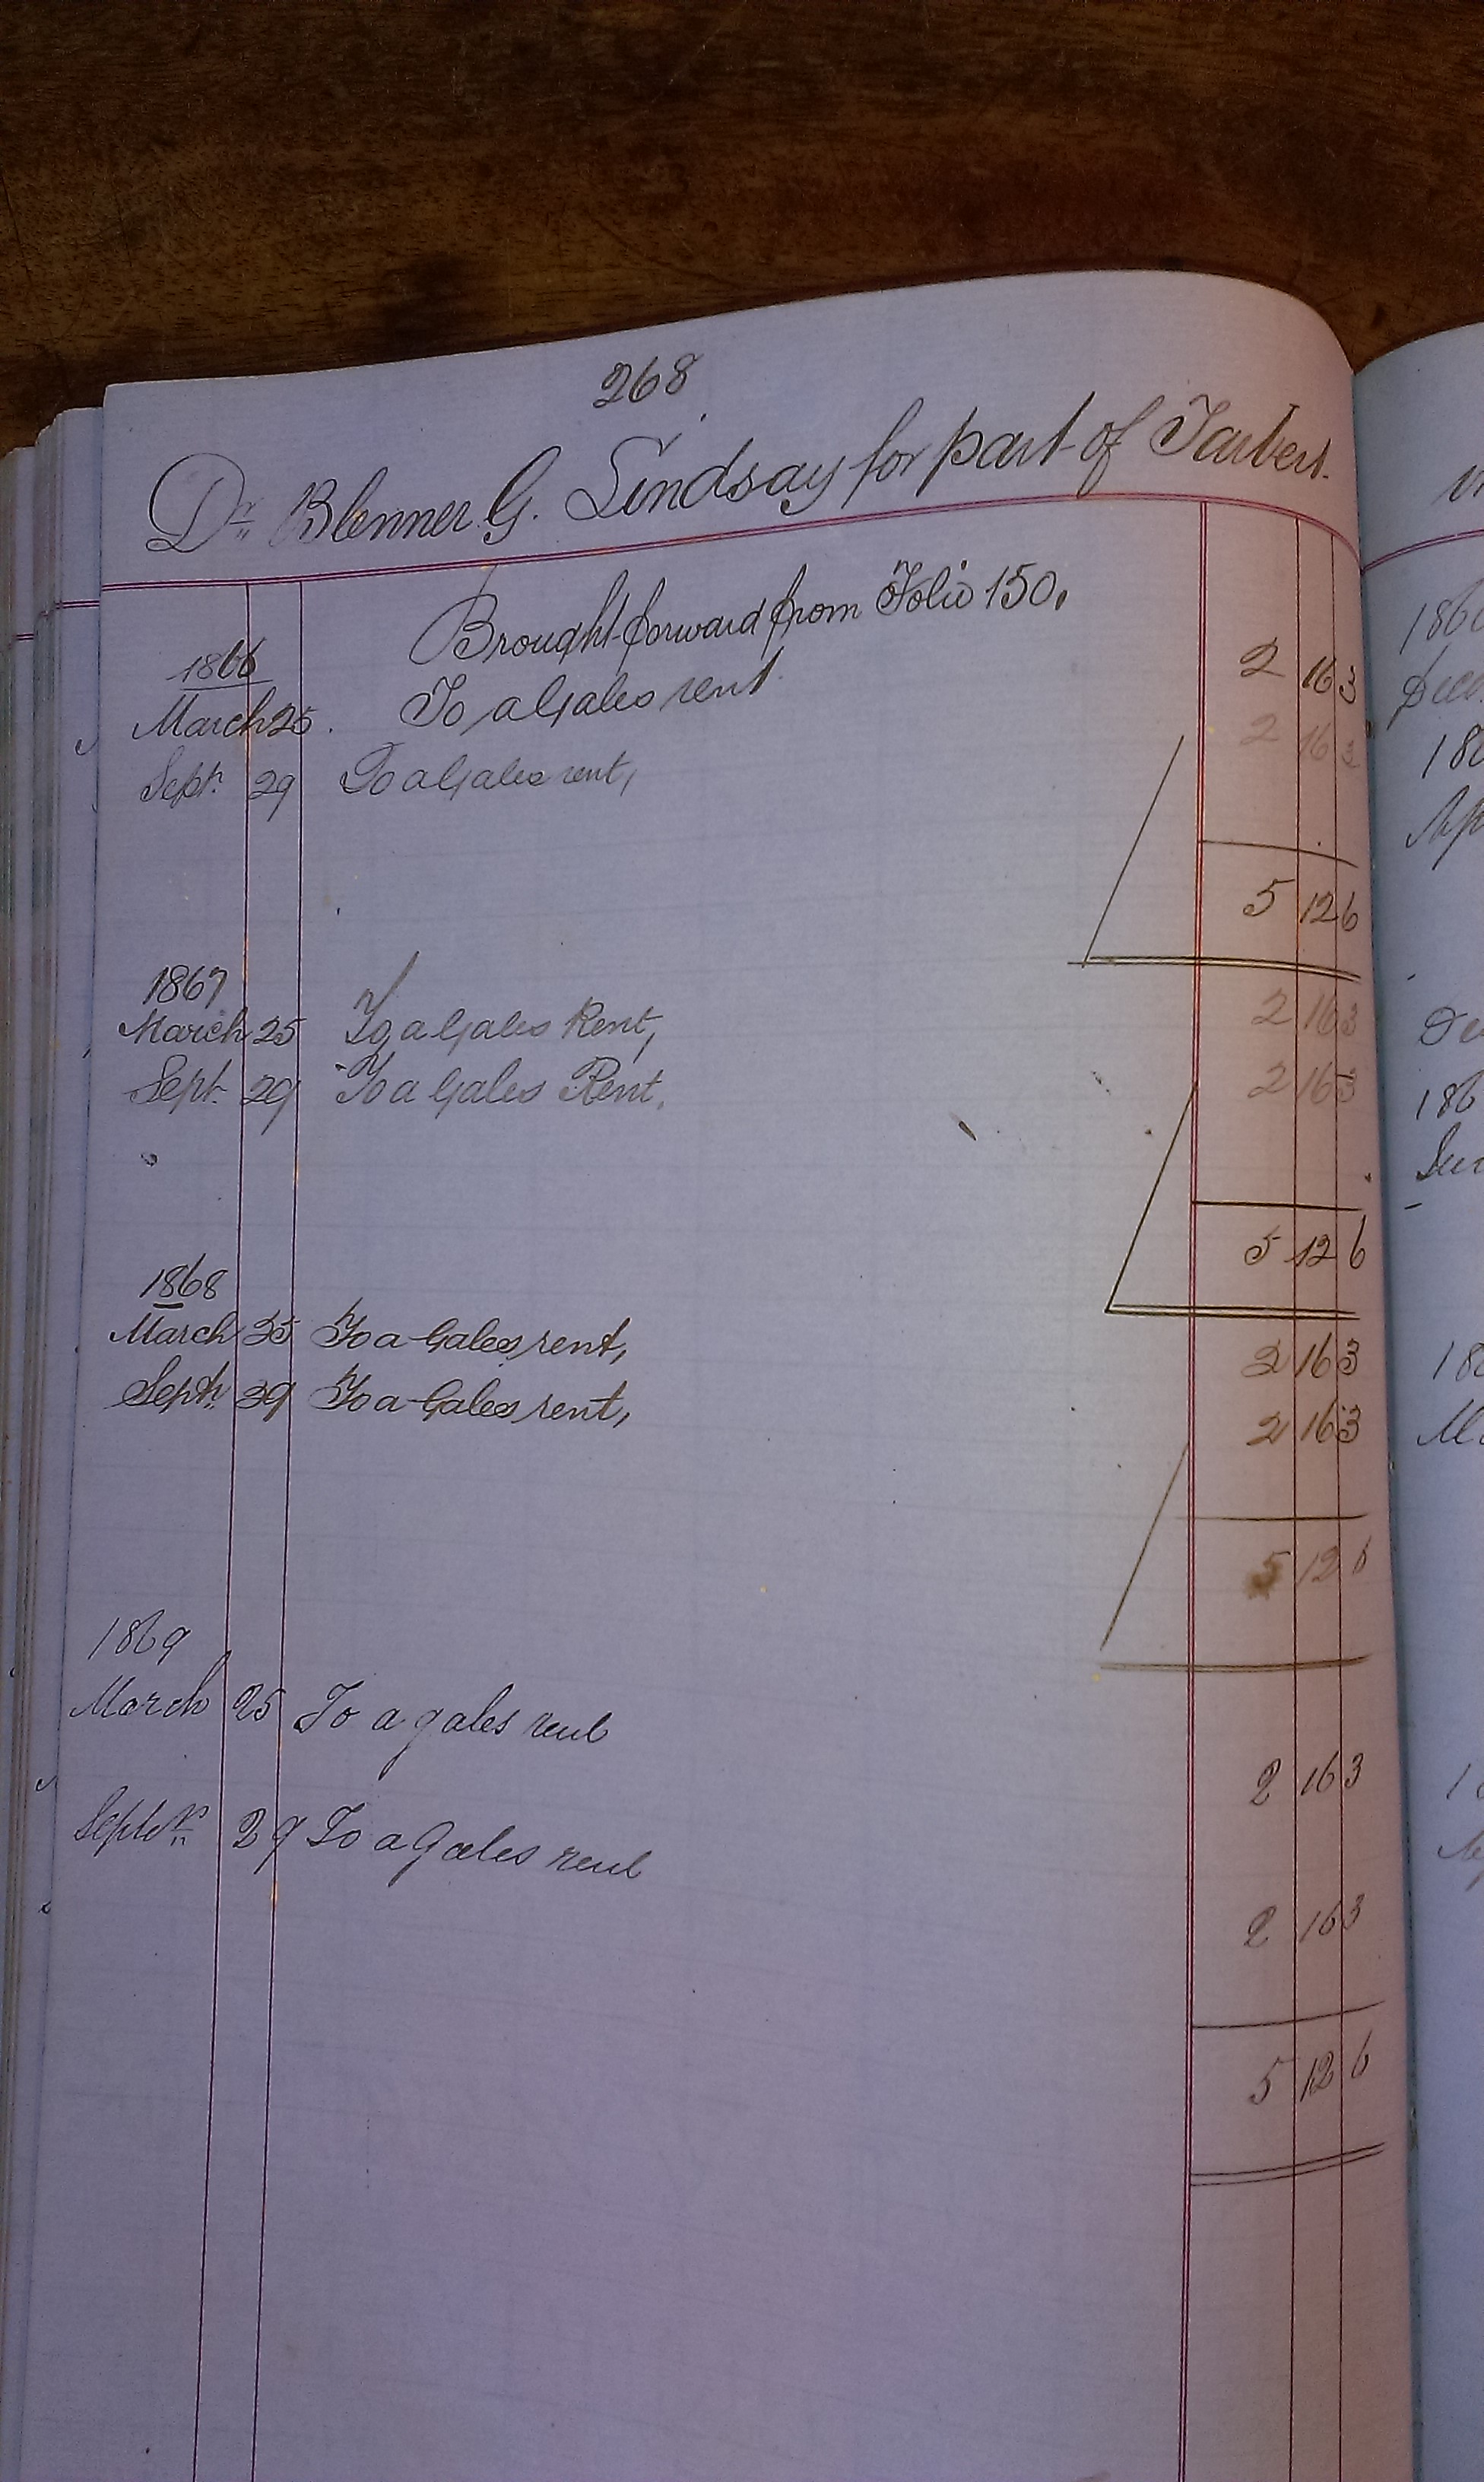 268
Dr Blenner G. Lindsay for part of Tarbert.
Brought forward from Folio 150.
1866
March 25. To a Gales rent 2 16 3
Sept. 29 To a Gales rent, 2 16 3
5 12 6
1867
March 25 To a Gales Rent, 2 16 3
Sept. 29 To a Gales Rent. 2 16 3
5 12 6
1868
March 25 To a Gales rent, 2 16 3
Sept. 29 To a Gales rent, 2 16 3
5 12 6
1869
March 25 To a gales rent 2 16 3
Septr 29 To a Gales rent 2 16 3
5 12 6